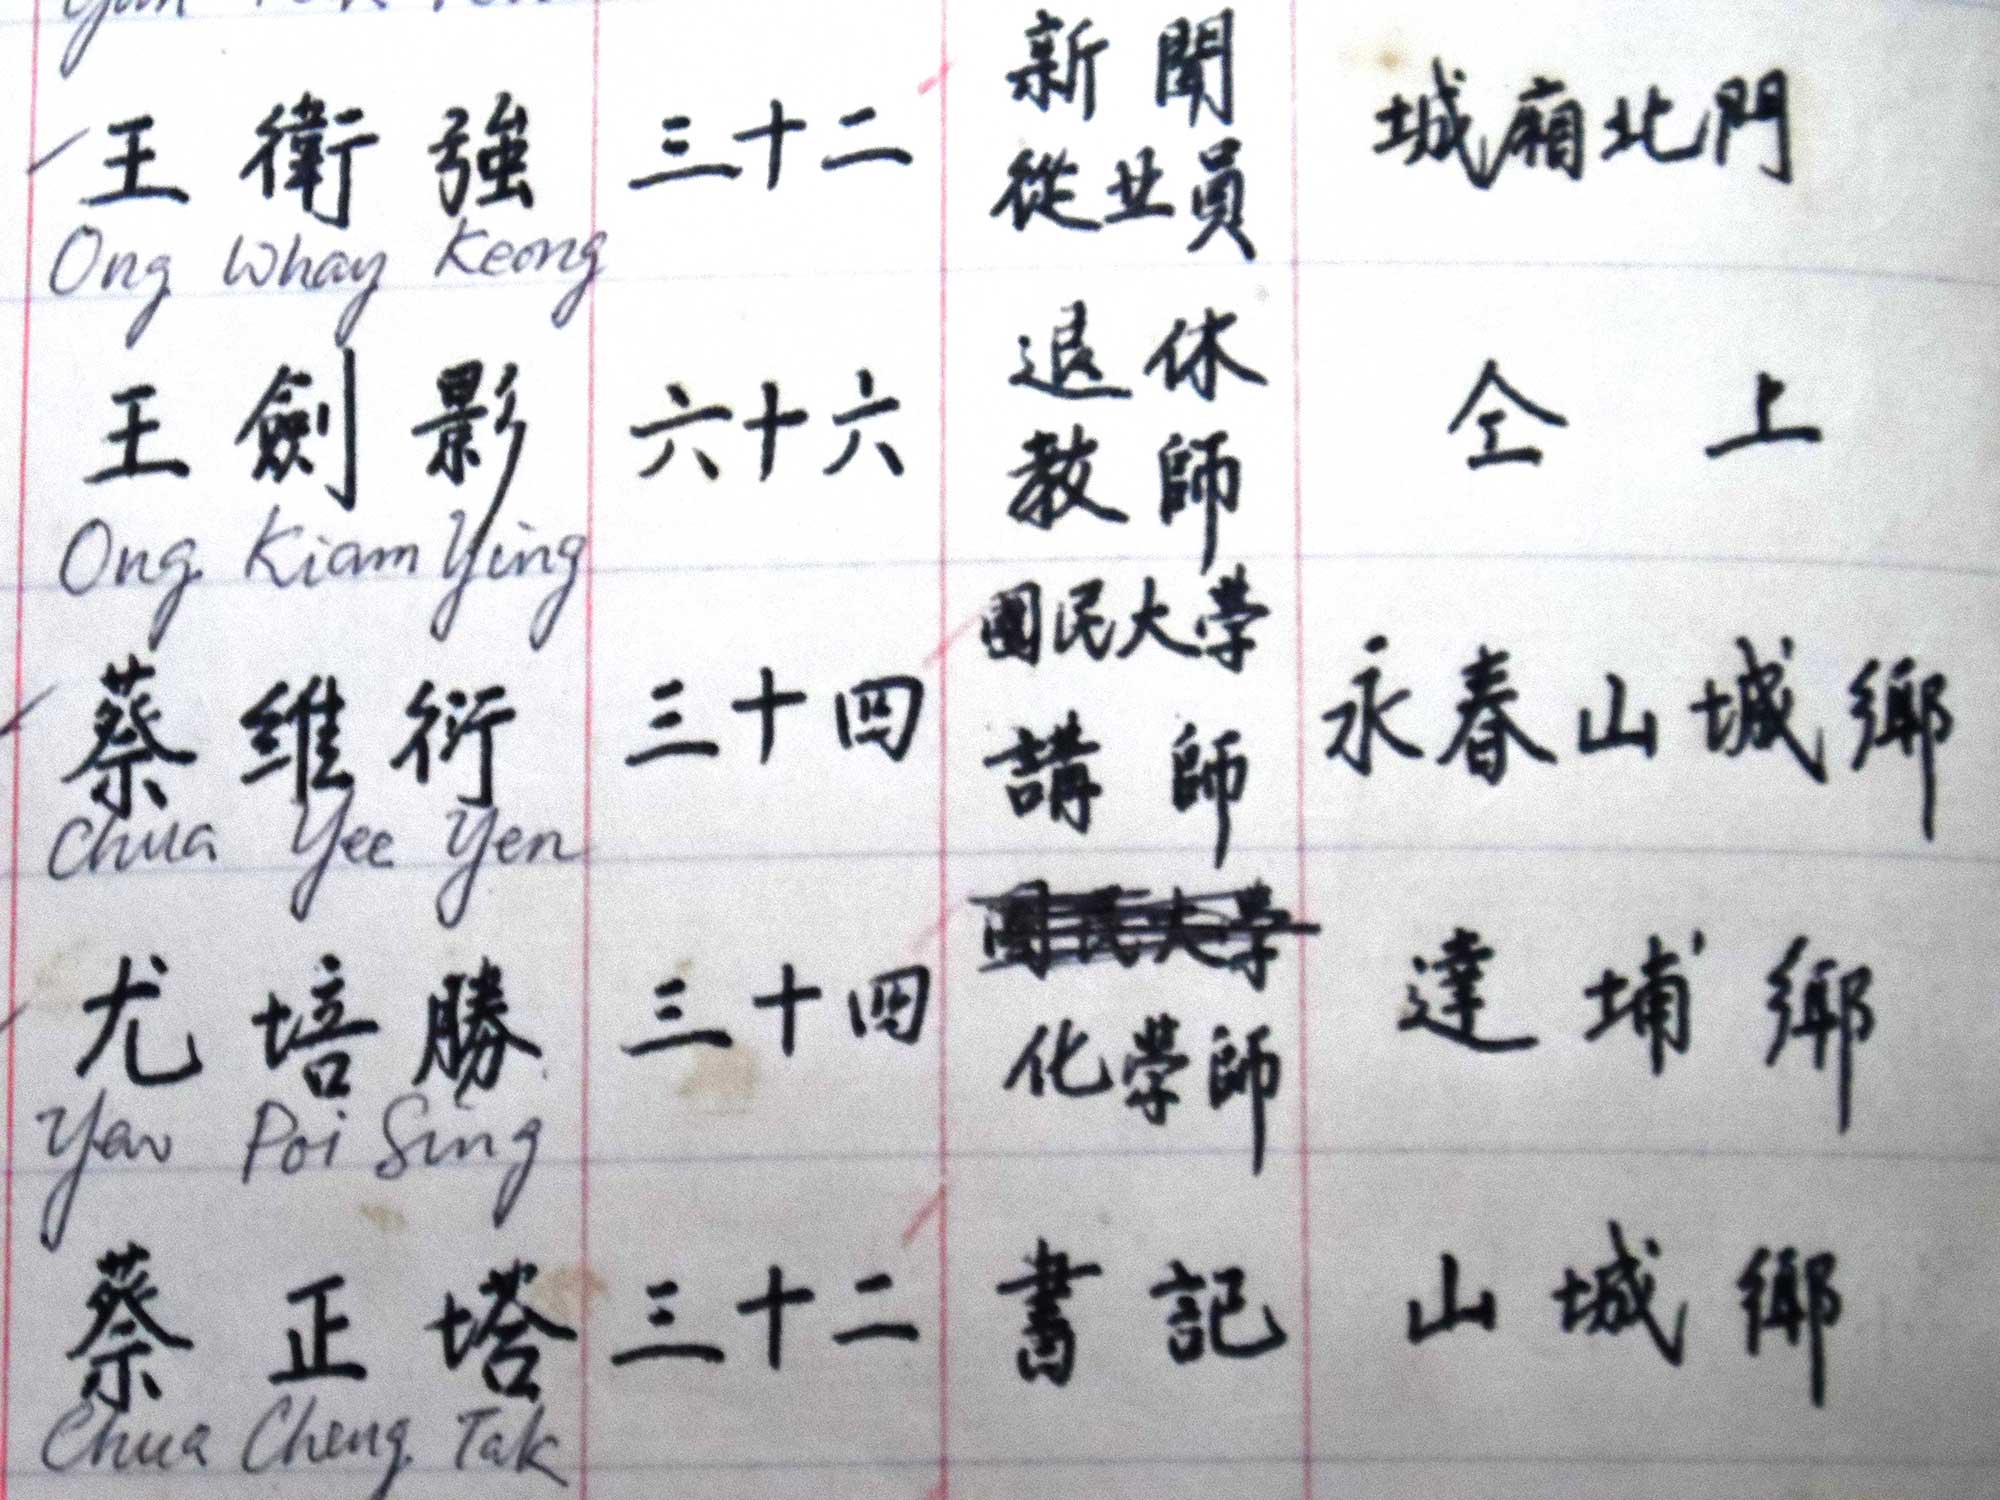 王衛強 三十二 新聞從业員 城廂北門
Ong Whay Keong
王劍影 六十六 退休教師 仝上
Ong Kiam Ying
蔡維衍 三十四 國民大學講師 永春山城鄉
Chua Yee Yen
尤培勝 三十四 化學師 達埔鄉
Yew Poi Sing
蔡正塔 三十二 書記 山城鄉
Chua Cheng Tak